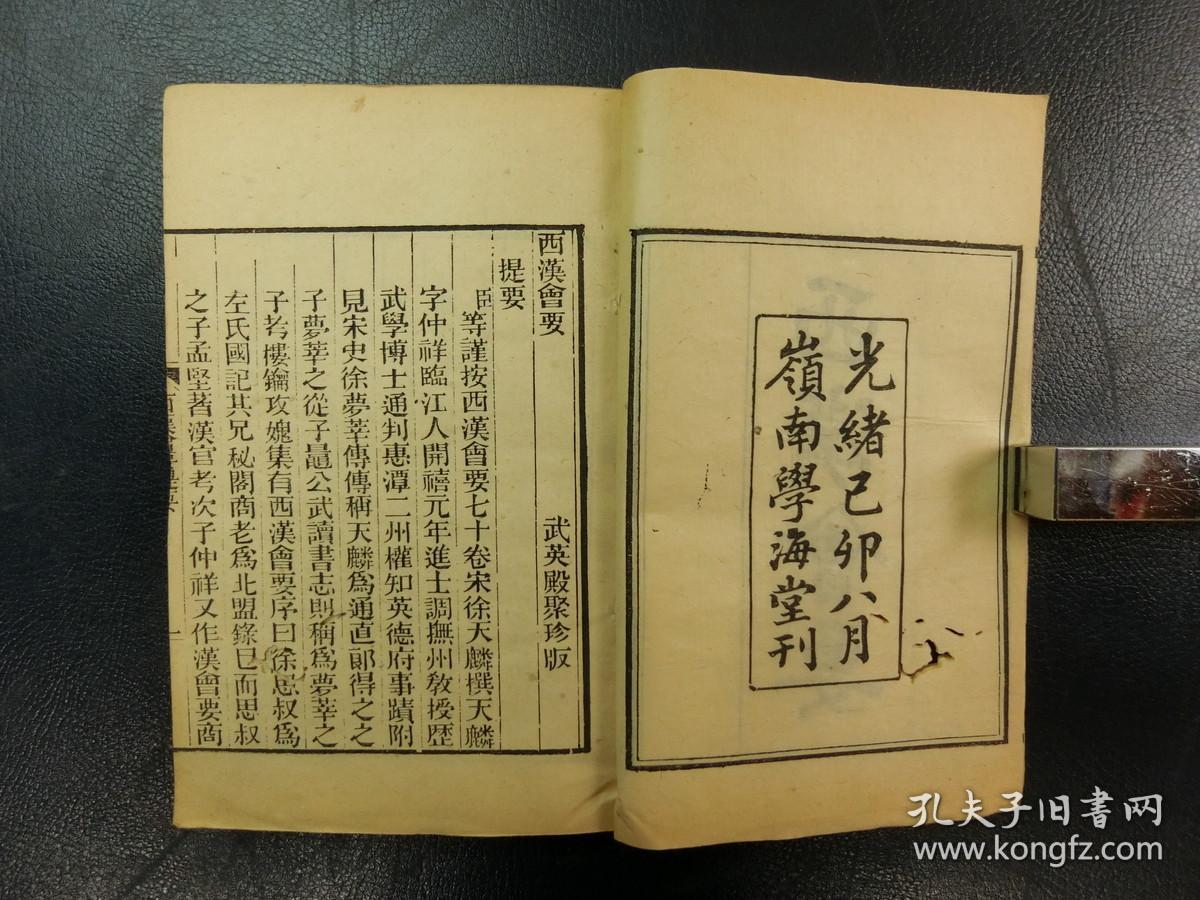 光緒己卯八月
嶺南學海堂刊
西漢會要 武英殿聚珍版
提要
臣等謹按西漢會要七十卷宋徐天麟撰天麟
字仲祥臨江人開禧元年進士調撫州敎授歷
武學博士通判惠潭二州權知英德府事蹟附
見宋史徐夢莘傳傳稱天麟爲通直郞得之之
子夢莘之從子鼂公武讀書志則稱爲夢莘之
子考樓鑰攻媿集有西漢會要序曰徐思叔爲
左氏國記其兄秘閣商老爲北盟錄已而思叔
之子孟堅著漢官考次子仲祥又作漢會要商
孔夫子旧书网
www.kongfz.com